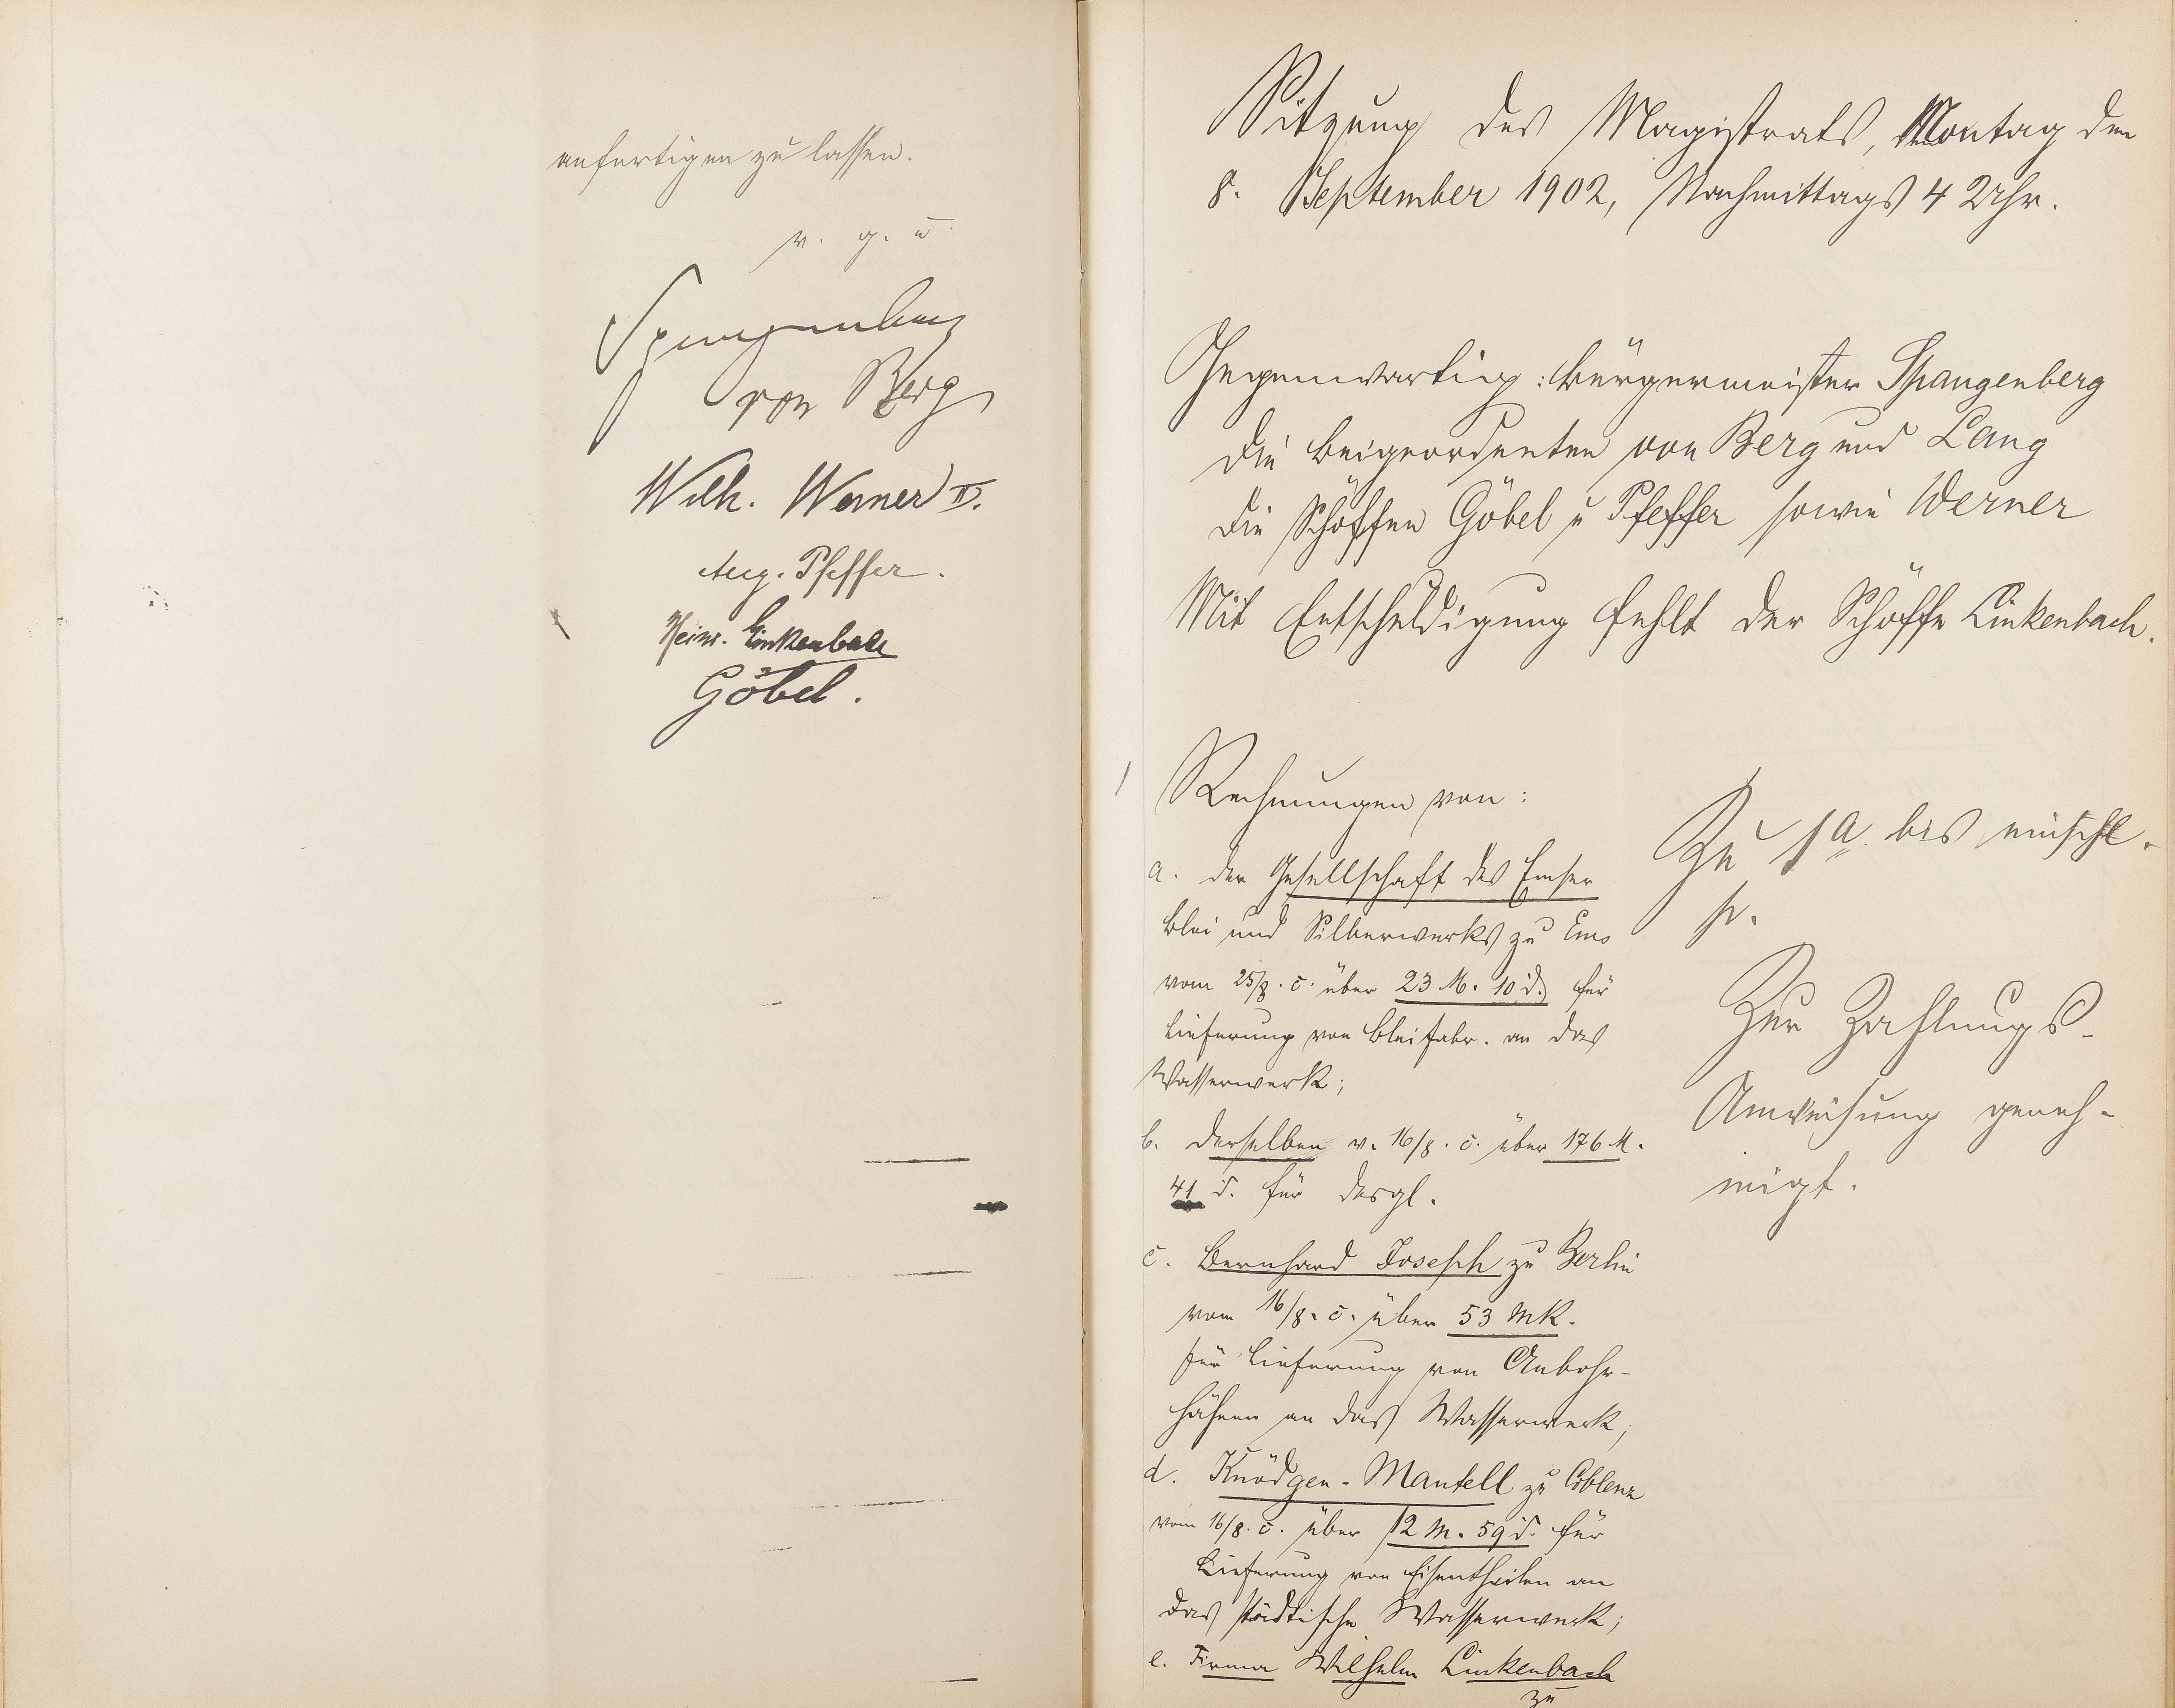 anfertigen zu lassen.
v. g. u.
Spangenberg
von Berg
Wilh. Werner II.
Aug. Pfeffer.
Heinr. Linkenbach
Göbel.
Sitzung des Magistrats, Montag den
8. September 1902, Nachmittags 4 Uhr.
Gegenwärtig: Bürgermeister Spangenberg
die Beigeordneten von Berg und Lang
die Schöffen Göbel u Pfeffer sowie Werner
Mit Entschuldigung fehlt der Schöffe Linkenbach.
1 Rechnungen von:
a. der Gesellschaft des Emser
Blei und Silberwerks zu Ems
vom 25/8. c. über 23 M. 10 d. für
Lieferung von Bleifabr. an das
Wasserwerk;
b. derselben v. 16/8. c. über 176 M.
41 d. für desgl.
c. Bernhard Joseph zu Berlin
vom 16/8. c. über 53 Mk.
für Lieferung von Anbohr-
hähnen an das Wasserwerk;
d. Knödgen-Mantell zu Coblenz
vom 16/8. c. über 12 M. 59 d. für
Lieferung von Eisentheilen an
das städtische Wasserwerk;
e. Firma Wilhelm Linkenbach
zu
Zu 1a. bis einschl.
Zur Zahlungs-
Anweisung geneh-
migt.